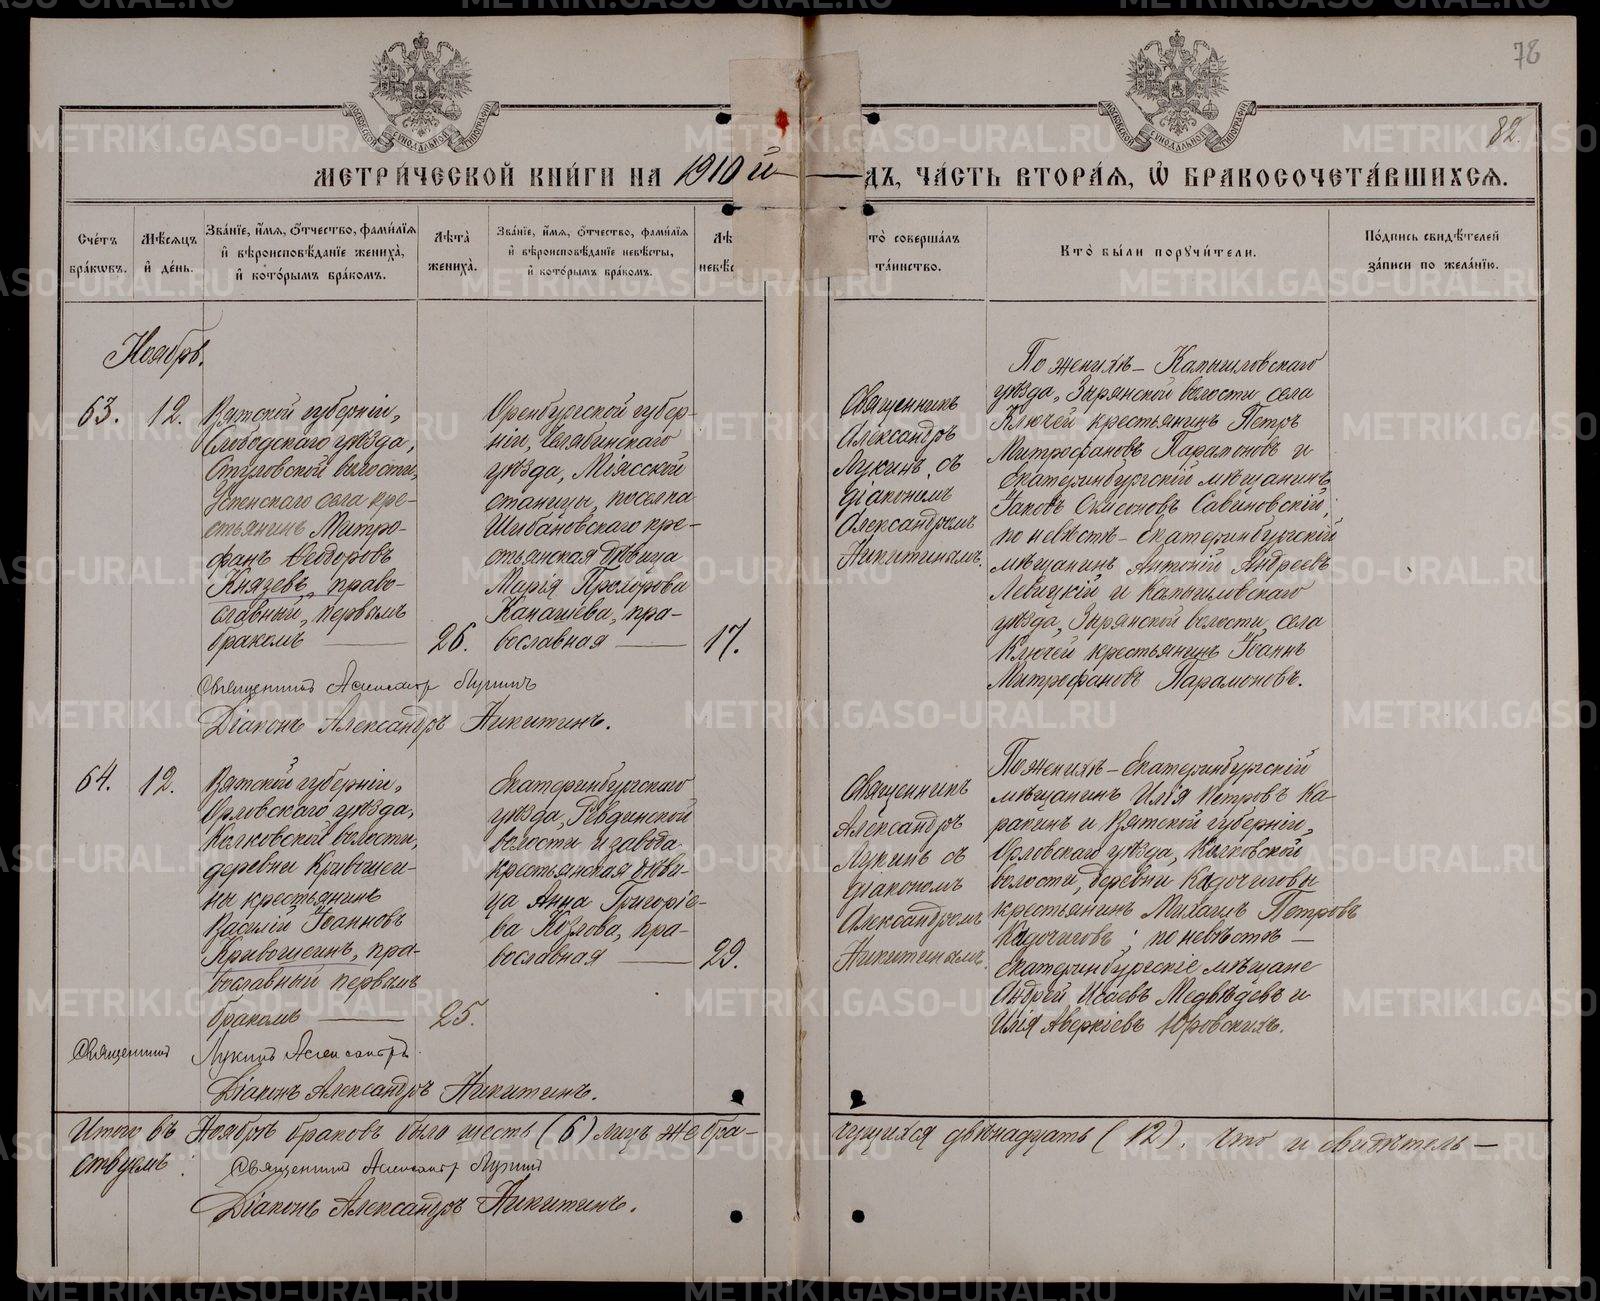 78
82
МОСКОВСКОЙ СѴНОДАЛЬНОЙ ТИПОГРАФІИ
МОСКОВСКОЙ СѴНОДАЛЬНОЙ ТИПОГРАФІИ
МЕТРИ́ЧЕСКОЙ КНИ́ГИ НА 1910 й
ДЪ, ЧА́СТЬ ВТОРА́Я, Ѽ БРАКОСОЧЕТА́ВШИХСЯ.
Счетъ бра́кѡвъ.
Мѣ́сяцъ и҆ де́нь.
Зва́нїе, и҆́мя, ѻ҆́тчество, фами́лїя и҆ вѣроисповѣ́данїе жениха̀, и҆ кото́рымъ бра́комъ.
Лѣ́та жениха̀.
Зва́нїе, и҆́мя, ѻ҆́тчество, фами́лїя и҆ вѣроисповѣ́данїе невѣ́сты, и҆ кото́рымъ бра́комъ.
Лѣ
невѣс
то̀ соверша́лъ та́инство.
Кто̀ бы́ли порꙋчи́тели.
По́дпись свидѣ́телей за́писи по жела́нїю.
Ноябрь.
63.
12.
Вятской губерніи,
Слободскаго уѣзда,
Стуловской волости,
Успенскаго села кре-
стьянинъ Митро-
фанъ Ѳеодоровъ
Князевъ, право-
славный, первымъ
бракомъ
26.
Оренбургской губер-
ніи, Челябинскаго
уѣзда, Міясской
станицы, поселка
Шибановскаго кре-
стьянская дѣвица
Марія Прохорова
Канашева, пра-
вославная
17.
Священникъ
Александръ
Лукинъ съ
діакономъ
Александромъ
Никитинымъ.
По женихѣ - Камышловскаго
уѣзда, Зырянской волости села
Ключей крестьянинъ Петръ
Митрофановъ Парамоновъ и
Екатеринбургскій мѣщанинъ
Іаковъ Савиновскій,
по невѣстѣ - Екатеринбургскій
мѣщанинъ Антоній Андреевъ
Левицкій и Камышловскаго
уѣзда, Зырянской волости, села
Ключей крестьянинъ Іоаннъ
Митрофановъ Парамоновъ.
Священникъ Александр Лукинъ
Діаконъ Александръ Никитинъ.
64.
12.
Вятской губерніи,
Орловскаго уѣзда,
волости,
деревни Кривошеи-
ны крестьянинъ
Василій Іоанновъ
Кривошеинъ, пра-
вославный первымъ
бракомъ
25.
Екатеринбургскаго
уѣзда, Ревдинской
волости и завода
крестьянская дѣви-
ца Анна Григоріе-
ва Козлова, пра-
вославная
29.
Священникъ
Александръ
Лукинъ съ
діакономъ
Александромъ
Никитинымъ.
По женихѣ - Екатеринбургскій
мѣщанинъ Илія Петровъ Ка-
ракинъ и Вятской губерніи,
Орловскаго уѣзда,
волости, деревни Кадочиговы
крестьянинъ Михаилъ Петровъ
Кадочиговъ; по невѣстѣ -
Екатеринбургскіе мѣщане
Андрей Исаевъ Медвѣдевъ и
Илія Аверкіевъ Юровскихъ.
Священникъ Лукинъ Александръ
Діаконъ Александръ Никитинъ.
Итого въ Ноябрѣ браковъ было шесть (6) лицъ же бра-
чущихся двѣнадцать (12). Что и свидѣтель-
ствуемъ:
Священникъ Александр Лукинъ
Діаконъ Александръ Никитинъ.
METRIKI.GASO-URAL.RU